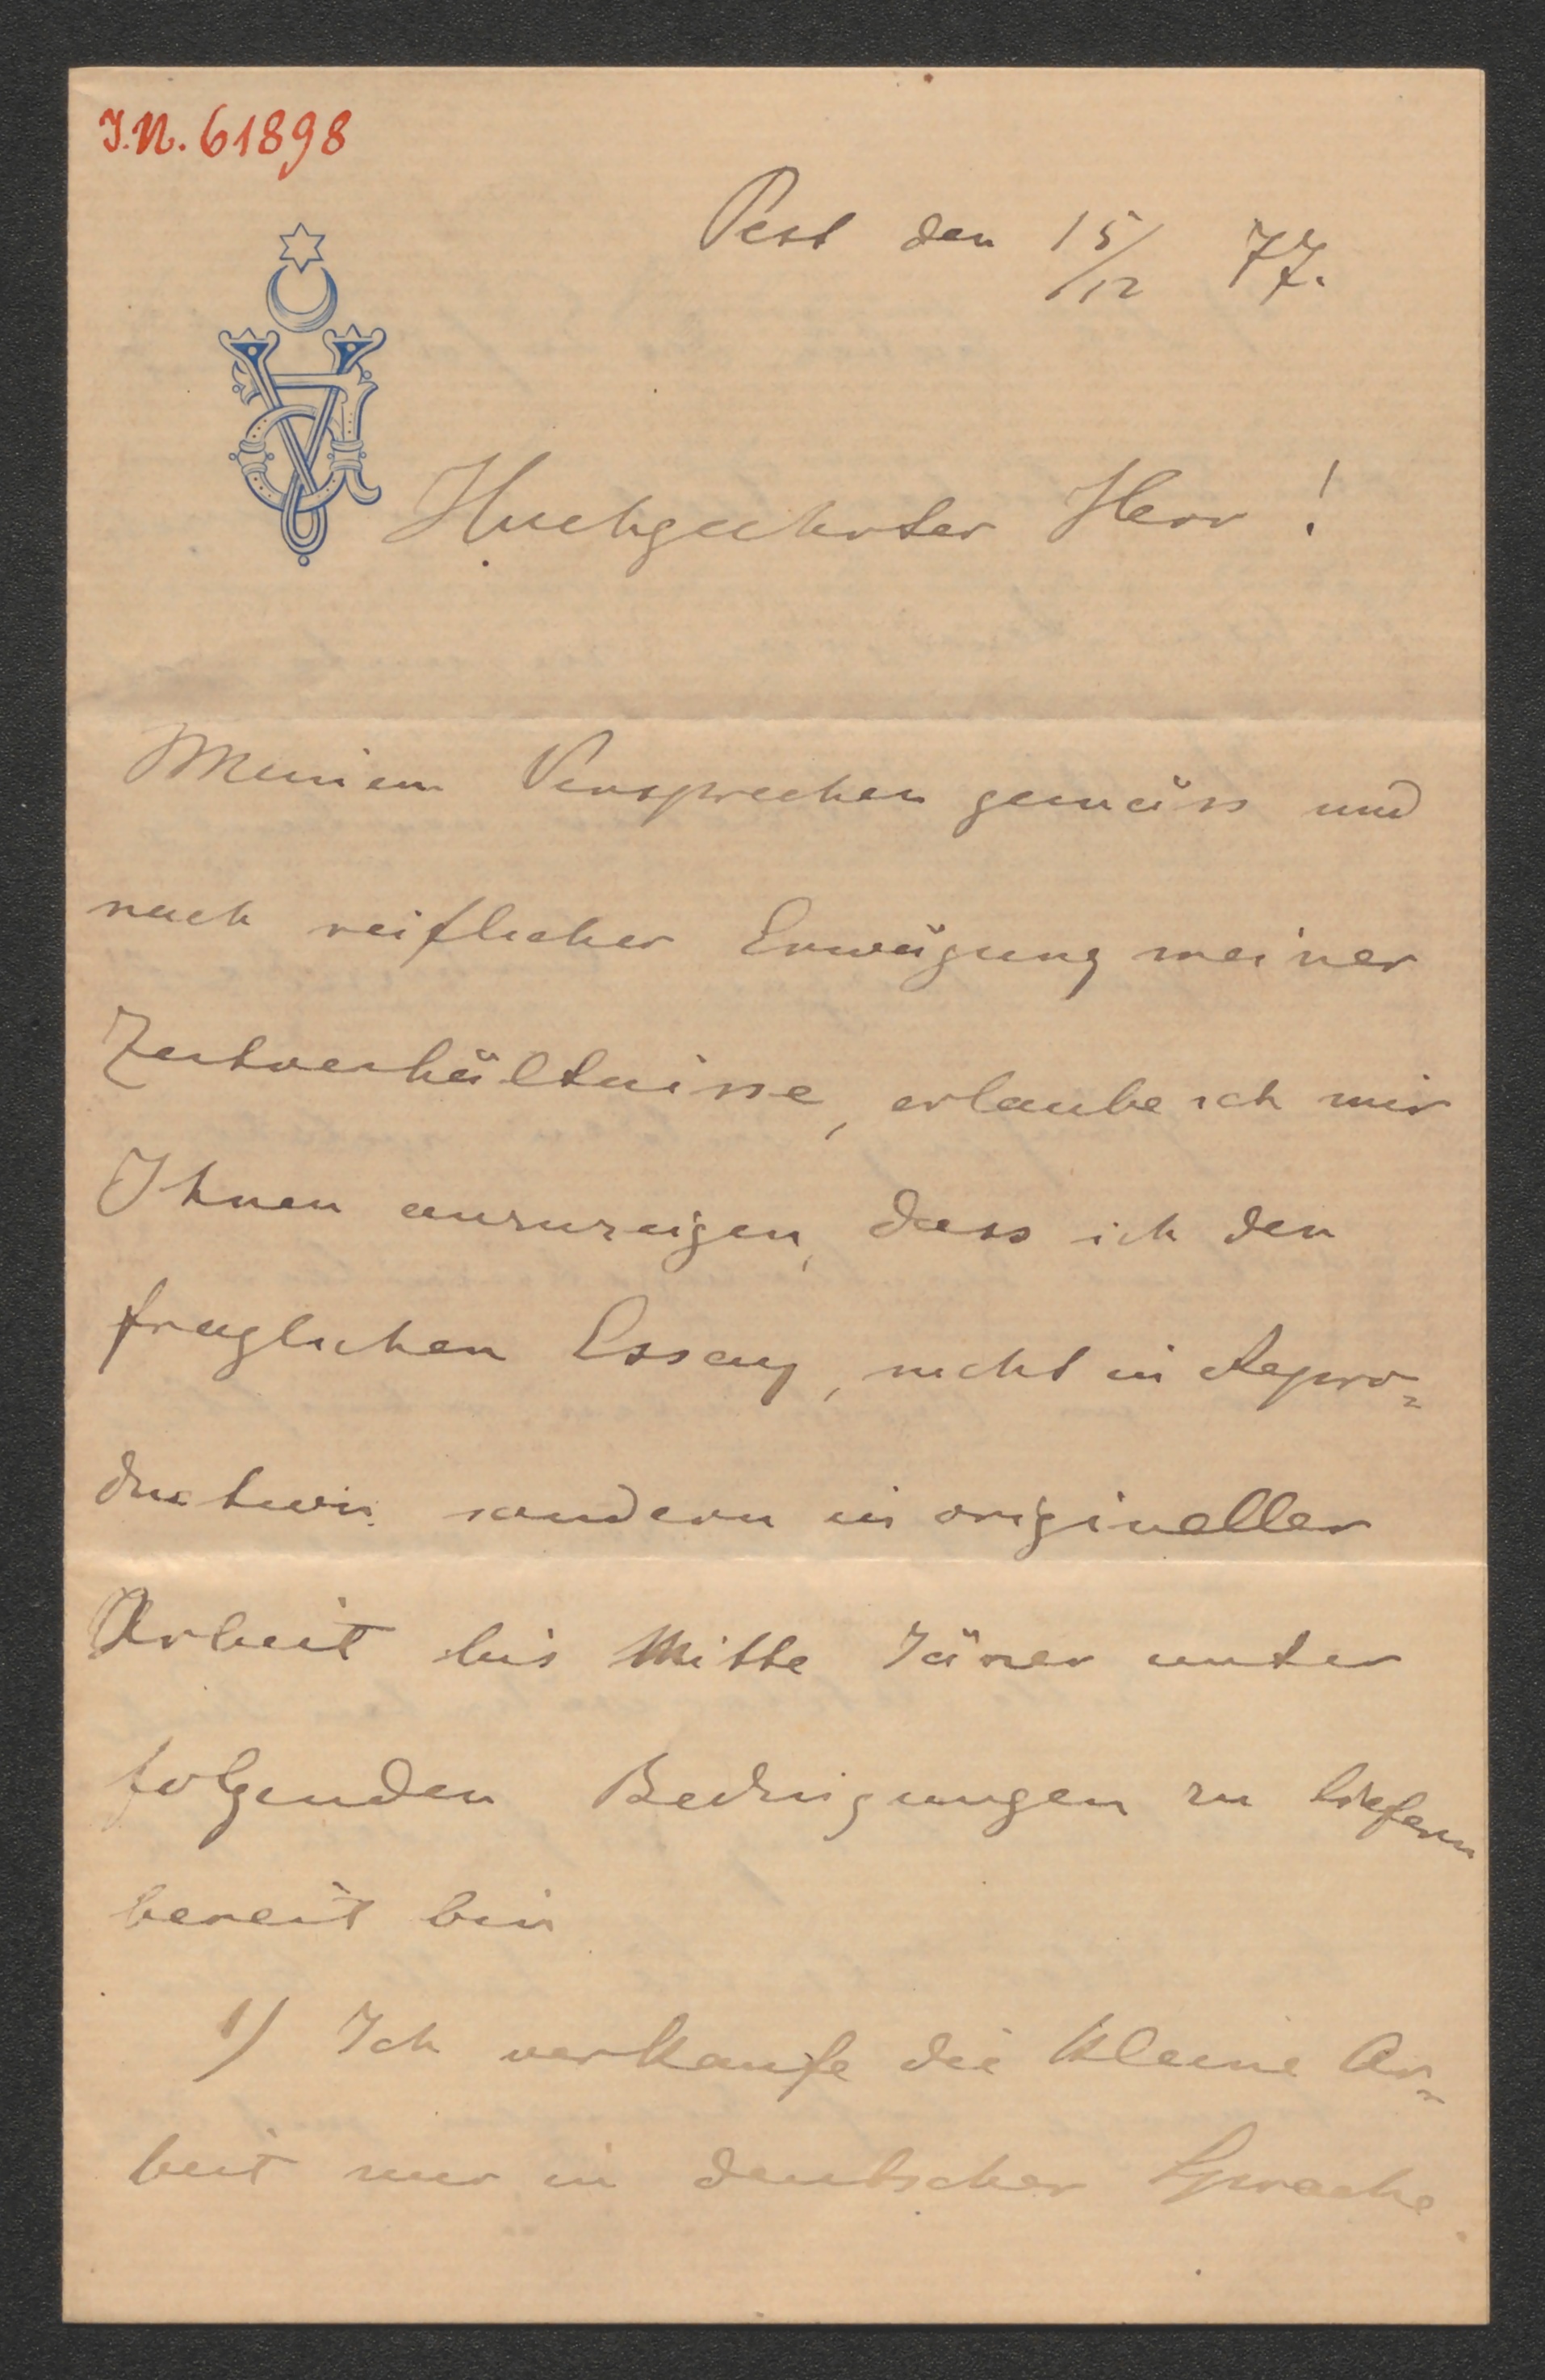 I.N. 61898
Pest den 15/12 77.
Hochgeehrter Herr !
Meinem Versprechen gemäss und
nach reiflicher Erwägung meiner
Zeitverhältnisse, erlaube ich mir
Ihnen anzuzeigen, dass ich den
fraglichen Essay, nicht in Repro=
duction sondern in origineller
Arbeit bis Mitte Jäner unter
folgenden Bedingungen zu liefern
bereit bin
1) Ich verkaufe die kleine Ar=
beit nur in deutscher Sprache